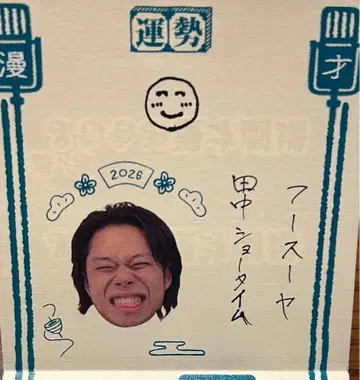 運勢
漫
才
2026
フースーヤ
田中ショータイム